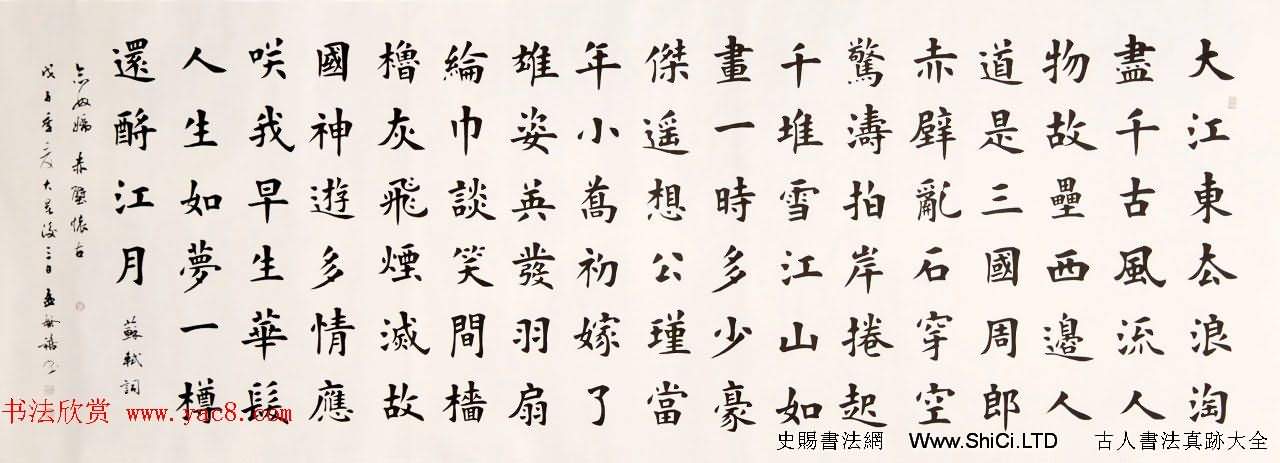 大江東去浪淘
盡千古風流人
物故壘西邊人
道是三國周郎
赤壁亂石穿空
驚濤拍岸捲起
千堆雪江山如
畫一時多少豪
傑遥想公瑾當
年小喬初嫁了
雄姿英發羽扇
綸巾談笑間檣
櫓灰飛煙滅故
國神遊多情應
咲我早生華髮
人生如夢一樽
還酹江月 蘇軾詞
念奴嬌 赤壁懷古
戊子季夏大暑後三日
书法欣赏 www.yac8.com
史賜書法網 Www.ShiCi.LTD 古人書法真跡大全